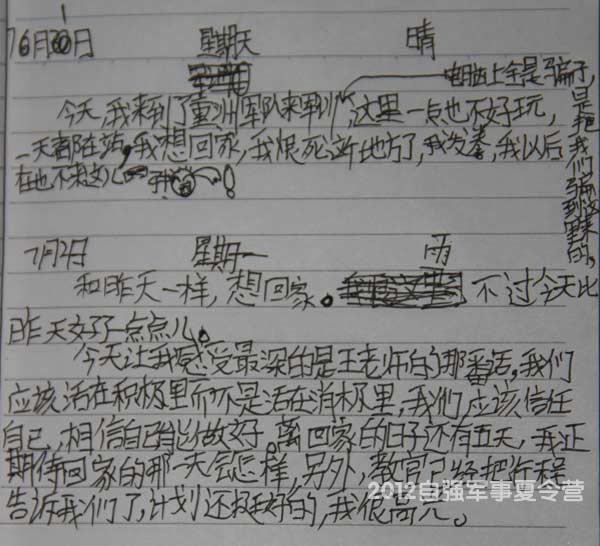 7月1日 星期天 晴
电脑上全是骗子,
是把我们骗到这里来的,
今天,我来到了重洲军队来军训,这里一点也不好玩,
一天都在站,我想回家,我恨死这地方了,我发誓,我以后
在也不来这儿
7月2日 星期一 雨
和昨天一样,想回家。不过今天比
昨天好了一点点儿。
今天让我感受最深的是王老师的那番话,我们
应该活在积极里而不是活在消极里,我们应该信任
自己,相信自己能做好。离回家的日子还有五天,我正
期待回家的那一天会怎样,另外,教官已经把行程
告诉我们了,计划还挺好的,我很高兴。
2012自强军事夏令营